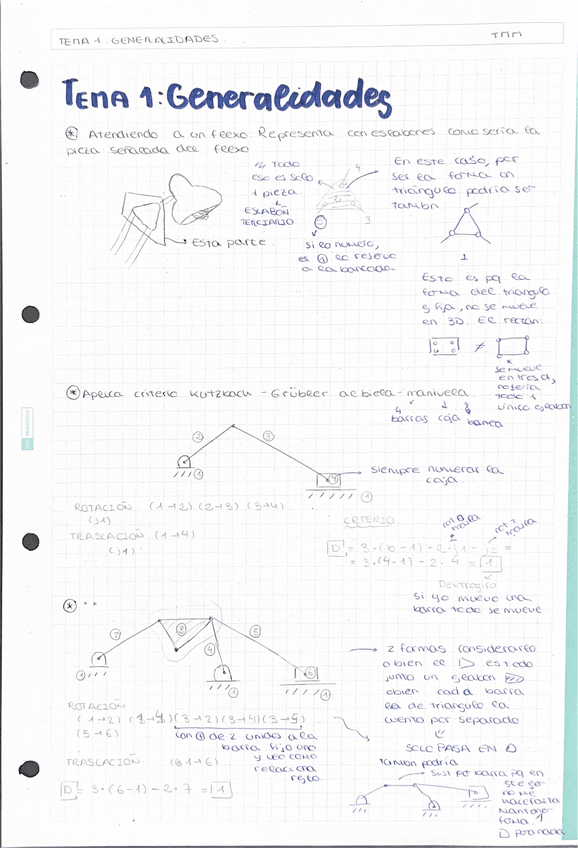 TEMA 1. GENERALIDADES.
TMM
TEMA 1: Generalidades
* Atendiendo a un flexo. Representa con eslabones como sería la
pieza señalada del flexo
Todo
eso es solo
1 pieza.
ESLABÓN
TERCIARIO
Esta parte.
4
2
3
Si lo numero,
el 1 lo reservo
a la bancada
En este caso, por
ser la forma un
triángulo podría ser
también
1
Esto es pq la
forma del triangulo
es fija, no se mueve
en 3D. El rectan.
≠
se mueve
todo 1
único eslabon
* Aplica criterio Kutzbach - Grübler al biela - manivela
4
barras caja banca
2
3
1
4
1
siempre numerar la
caja.
ROTACIÓN (1→2) (2→3) (3→4)
(J1)
TRASLACIÓN (1→4)
(J1)
CRITERIO
D = 3·(b-1) - 2·J1 - J2 =
= 3·(4-1) - 2·4 = 1
si yo muevo una
barra todo se mueve
* "
2
3
4
5
6
1
1
1
→ 2 formas considerarlo
o bien el ▷ es todo
junto un eslabon
o bien cada barra
del triangulo la
cuento por separado
SOLO PASA EN ▷
ROTACIÓN
(1→2) (1→4) (3→2) (3→4) (3→5)
(5→6)
barra fijo uno
y veo como
relaciona
resto.
TRASLACIÓN (1→6)
D = 3·(6-1) - 2·7 = 1
También podría
sust por barra pq en
no me
hace falta
mantener
forma
1